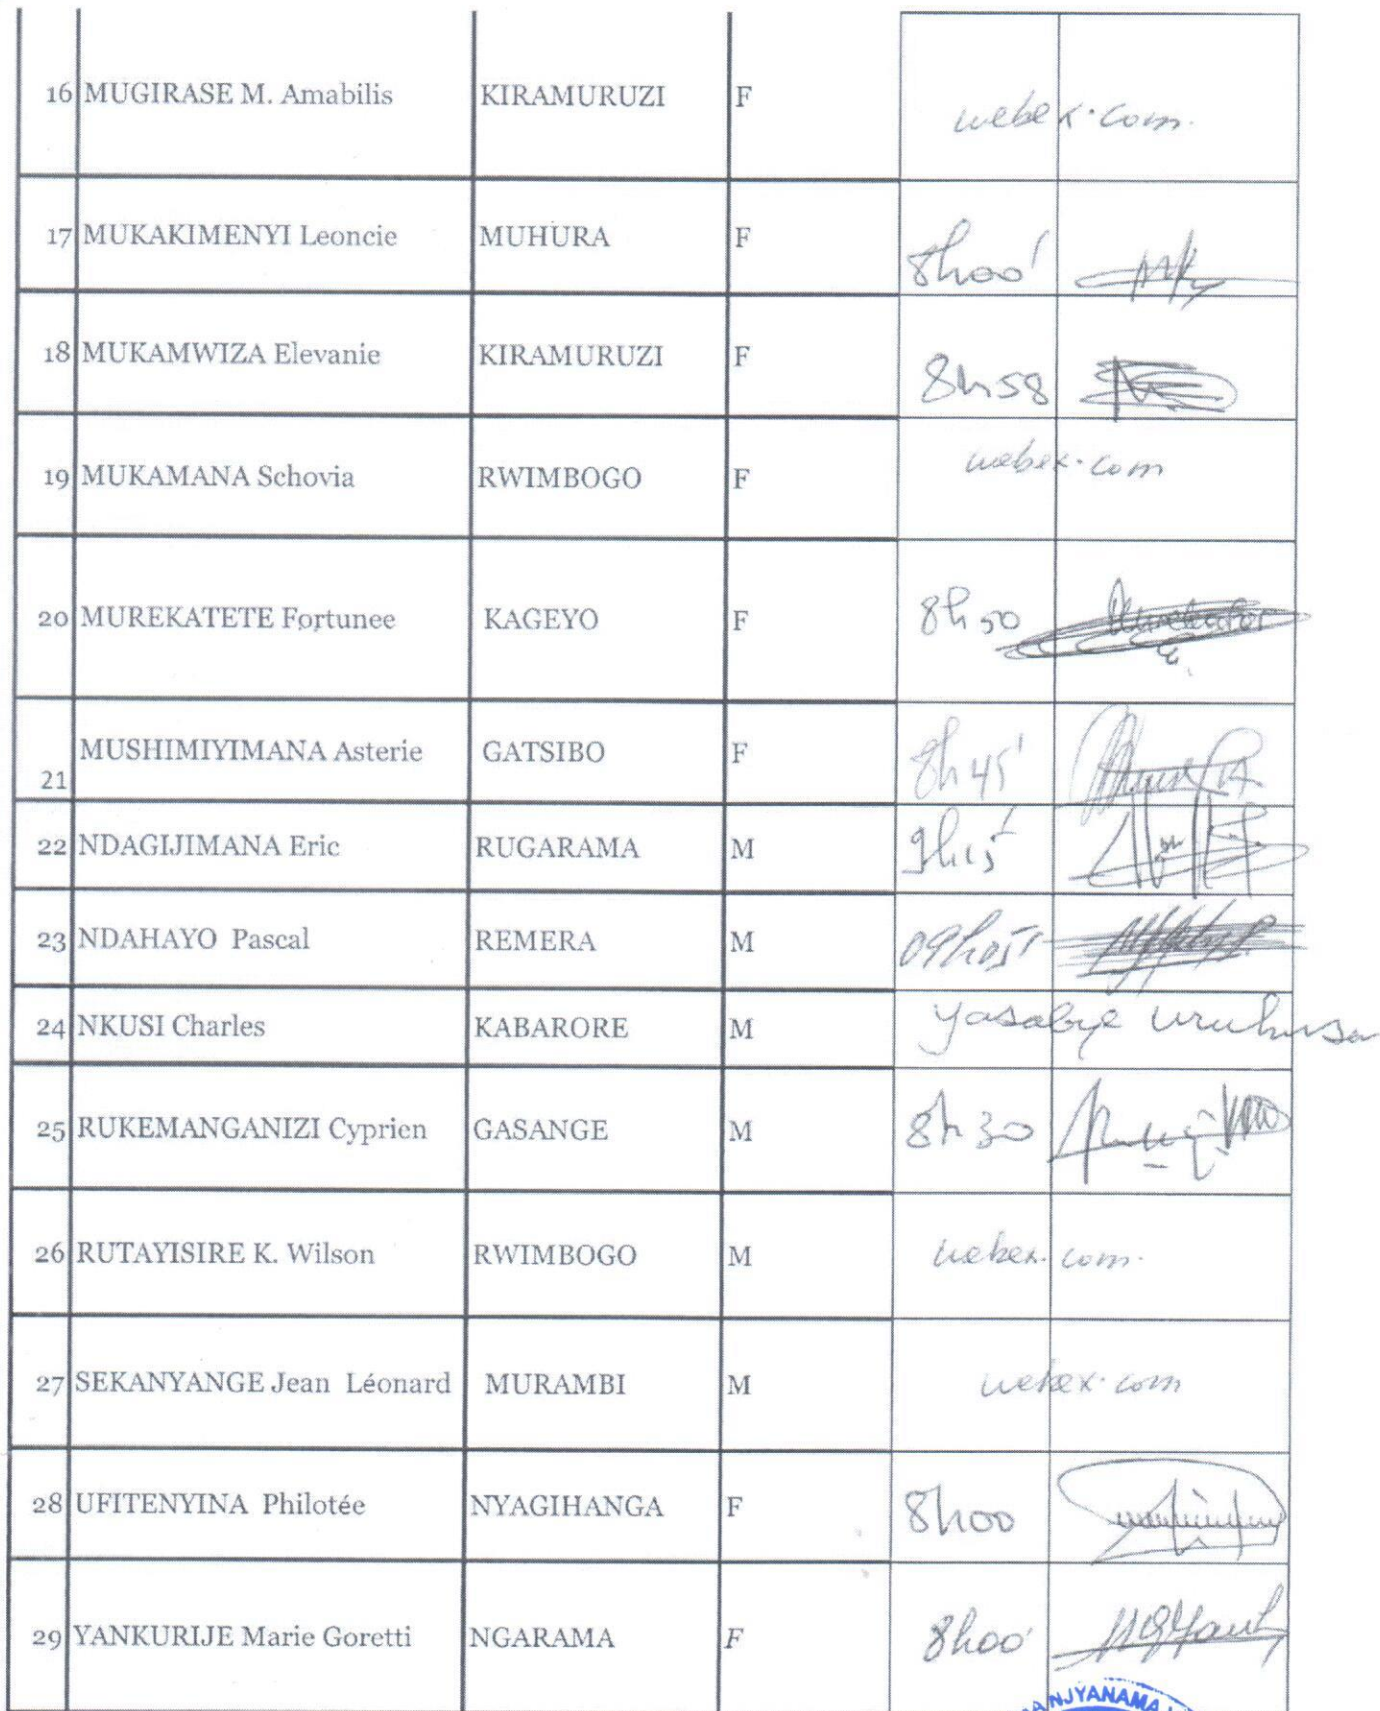 16 MUGIRASE M. Amabilis KIRAMURUZI F webex.com.
17 MUKAKIMENYI Leoncie MUHURA F 8h00'
18 MUKAMWIZA Elevanie KIRAMURUZI F 8h58
19 MUKAMANA Schovia RWIMBOGO F webex.com
20 MUREKATETE Fortunee KAGEYO F 8h50
21 MUSHIMIYIMANA Asterie GATSIBO F 8h45'
22 NDAGIJIMANA Eric RUGARAMA M 9h15'
23 NDAHAYO Pascal REMERA M 09h05'
24 NKUSI Charles KABARORE M yasabye uruhusa
25 RUKEMANGANIZI Cyprien GASANGE M 8h30
26 RUTAYISIRE K. Wilson RWIMBOGO M webex.com.
27 SEKANYANGE Jean Léonard MURAMBI M webex.com
28 UFITENYINA Philotée NYAGIHANGA F 8h00
29 YANKURIJE Marie Goretti NGARAMA F 8h00'
NJYANAMA